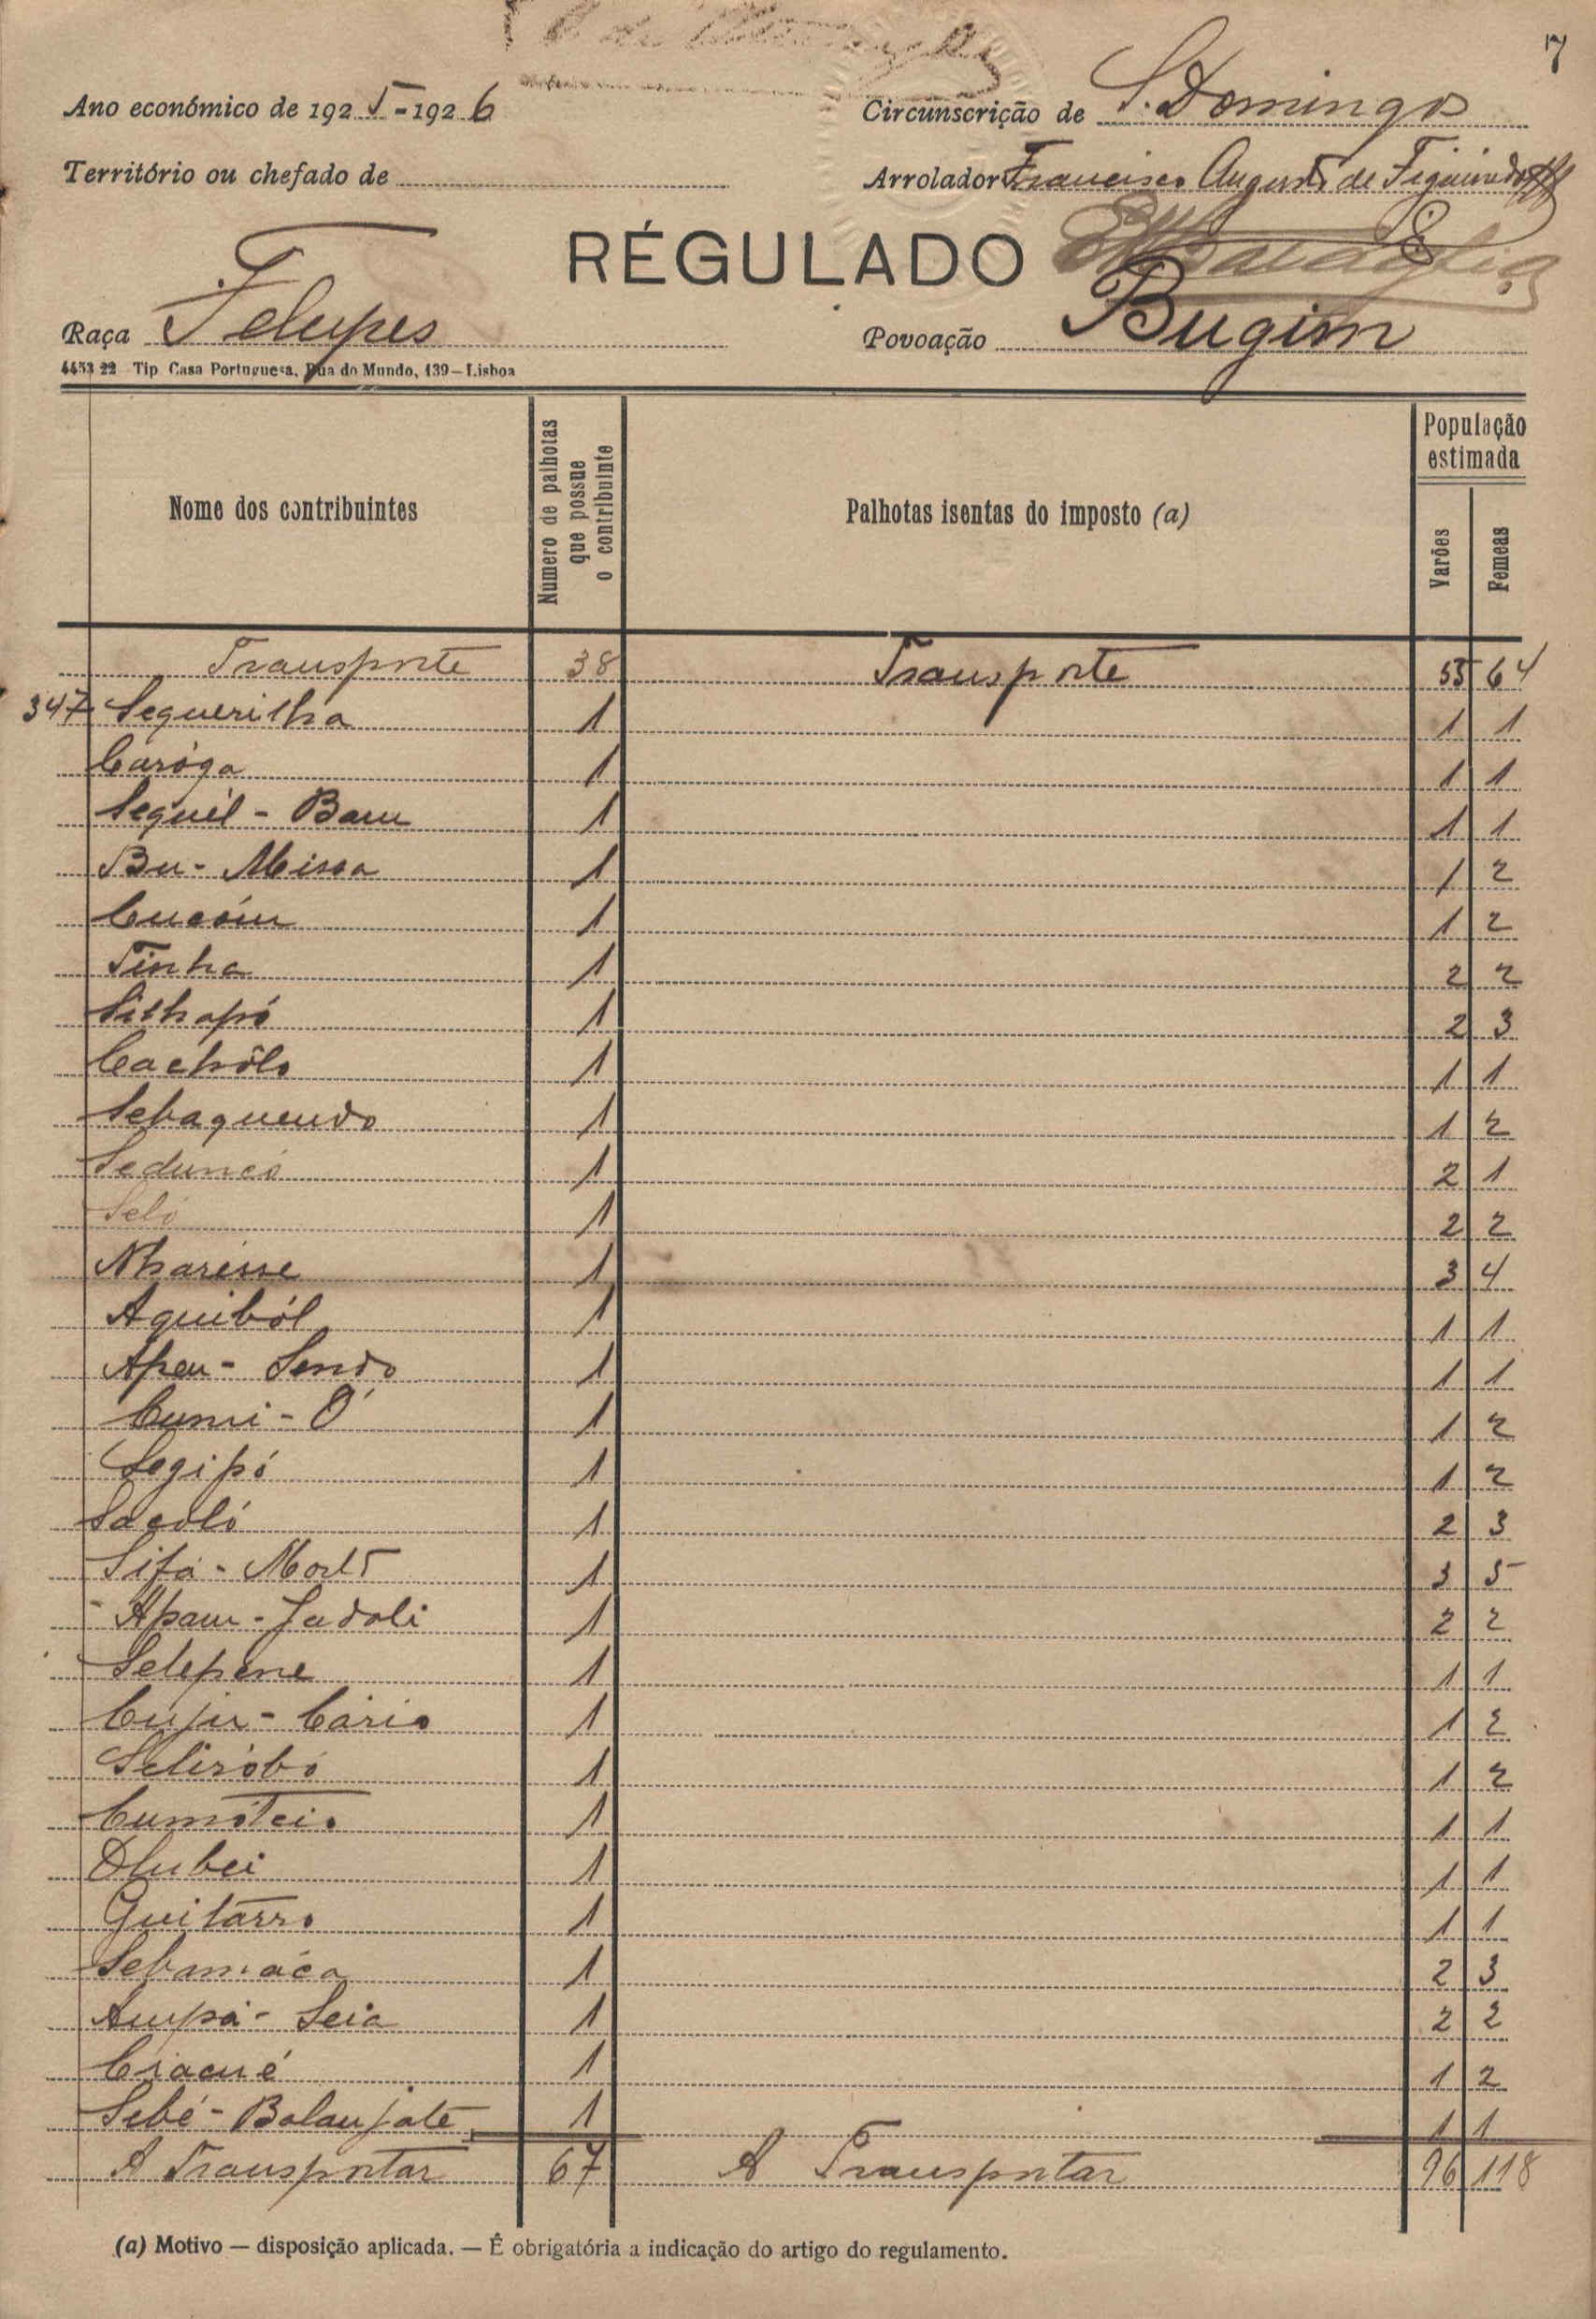 7
Ano económico de 1925-1926
Circunscrição de S. Domingos
Território ou chefado de
Arrolador Francisco Augusto de Figueiredo
RÉGULADO
Raça Felupes
Povoação Bugim
4453 22 Tip Casa Portuguesa, Rua do Mundo, 139—Lisboa
Nome dos contribuintes | Numero de palhotas que possue o contribuinte | Palhotas isentas do imposto (a) | População estimada
Varões | Femeas
Transporte 38 Transporte 55 64
347 Sequeritha 1 1 1
Caróga 1 1 1
Sequél - Bam 1 1 1
Bu - Missa 1 1 2
Cucóim 1 1 2
Tinha 1 2 2
Sithapó 1 2 3
Cachôlo 1 1 1
Sebaquendo 1 1 2
Seduncó 1 2 1
Seló 1 2 2
Nharésse 1 3 4
Aquiból 1 1 1
Apeu - Sendo 1 1 1
Cumi - Ó 1 1 2
Segipó 1 1 2
Sacoló 1 2 3
Sifá - Morto 1 3 5
Apam - Jadoli 1 2 2
Selepene 1 1 1
Cuju - Cário 1 1 2
Seliróbó 1 1 2
Cumóteio 1 1 1
Dlubei 1 1 1
Guitárro 1 1 1
Sebamáca 1 2 3
Ampá - Seia 1 2 2
Ciacué 1 1 2
Sebé - Balanjate 1 1 1
A Transportar 67 A Transportar 96 118
(a) Motivo — disposição aplicada. — É obrigatória a indicação do artigo do regulamento.